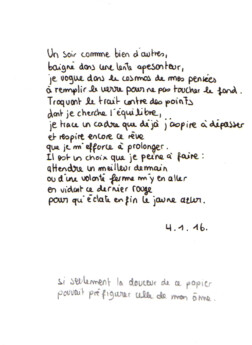 Un soir comme bien d'autres,
baigné dans une lente apesanteur,
je vogue dans le cosmos de mes pensées
à remplir le verre pour ne pas toucher le fond.
Troquant le trait contre des points
dont je cherche l'équilibre,
je trace un cadre que déjà j'aspire à dépasser
et respire encore ce rêve
que je m'efforce à prolonger.
Il est un choix que je peine à faire :
attendre un meilleur demain
ou d'une volonté ferme m'y en aller
en vidant ce dernier rouge
pour qu'éclate en fin le jaune azur.
4.1.16.
si seulement la douceur de ce papier
pouvait préfigurer celle de mon âme.